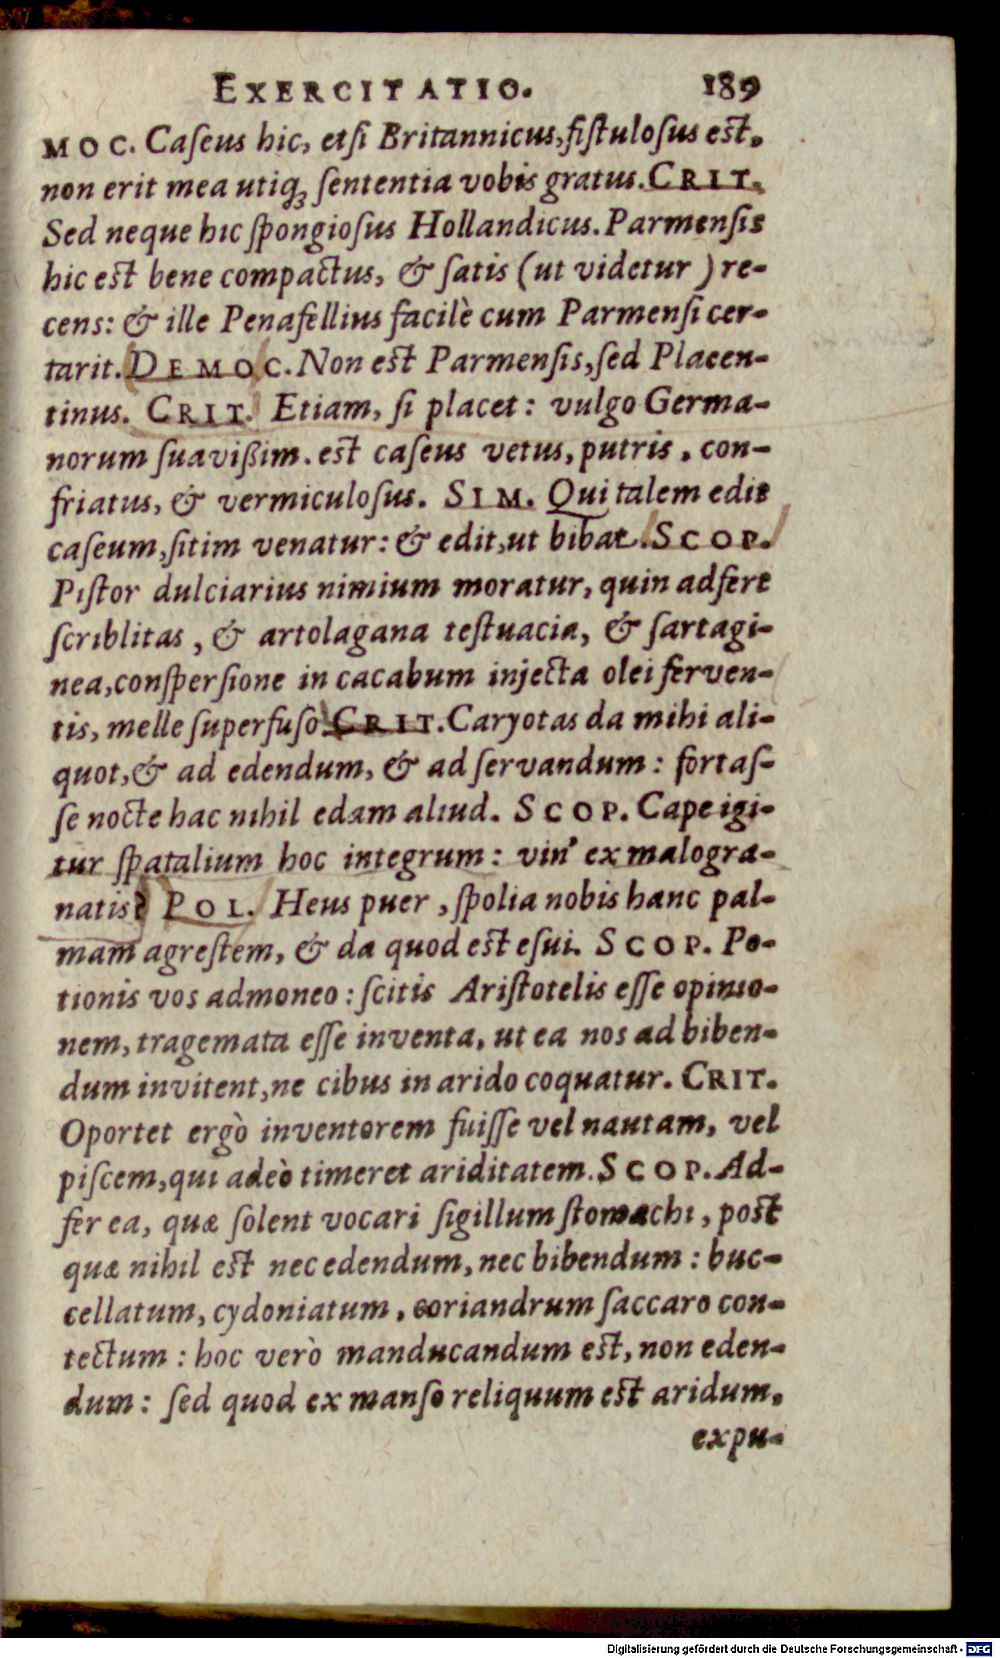 EXERCITATIO. 189
MOC. Caſeus hic, etſi Britannicus, fiſtuloſus eſt,
non erit mea utiq; ſententia vobis gratus. CRIT.
Sed neque hic ſpongioſus Hollandicus. Parmenſis
hic eſt bene compactus, & ſatis (ut videtur) re-
cens: & ille Penafellius facilè cum Parmenſi cer-
tarit. DEMOC. Non eſt Parmenſis, ſed Placen-
tinus. CRIT. Etiam, ſi placet: vulgo Germa-
norum ſuavißim. eſt caſeus vetus, putris, con-
friatus, & vermiculoſus. SIM. Qui talem edit
caſeum, ſitim venatur: & edit, ut bibat. SCOP.
Piſtor dulciarius nimium moratur, quin adfert
ſcriblitas, & artolagana teſtuacia, & ſartagi-
nea, conſperſione in cacabum injecta olei ferven-
tis, melle ſuperfuſo. CRIT. Caryotas da mihi ali-
quot, & ad edendum, & ad ſervandum: fortaſ-
ſe nocte hac nihil edam aliud. SCOP. Cape igi-
tur ſpatalium hoc integrum: vin' ex malogra-
natis? POL. Heus puer, ſpolia nobis hanc pal-
mam agreſtem, & da quod eſt eſui. SCOP. Po-
tionis vos admoneo: ſcitis Ariſtotelis eſſe opinio-
nem, tragemata eſſe inventa, ut ea nos ad biben-
dum invitent, ne cibus in arido coquatur. CRIT.
Oportet ergò inventorem fuiſſe vel nautam, vel
piſcem, qui adeò timeret ariditatem. SCOP. Ad-
fer ea, quæ ſolent vocari ſigillum ſtomachi, poſt
quæ nihil eſt nec edendum, nec bibendum: buc-
cellatum, cydoniatum, coriandrum ſaccaro con-
tectum: hoc verò manducandum eſt, non eden-
dum: ſed quod ex manſo reliquum eſt aridum,
expu-
Digitalisierung gefördert durch die Deutsche Forschungsgemeinschaft - DFG